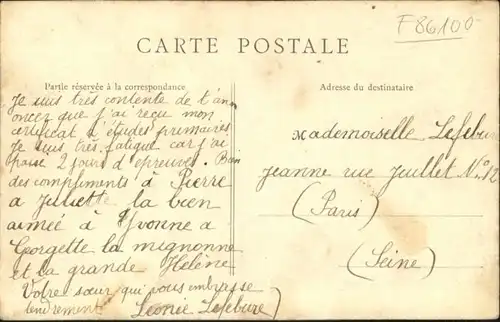 F86100
CARTE POSTALE
Partie réservée à la correspondance
Adresse du destinataire
Je suis très contente de t'an
oncez que j'ai reçu mon
certificat d'études primaires
Je suis très fatigue car j'ai
passe 2 jours d'epreuves. Bien
des compliments à Pierre
a Juliette la bien
aimée à Yvonne a
Georgette la mignonne
et la grande Hélène
Votre sœur qui vous embrasse
tendrement Leonie Lefebure
Mademoiselle Lefebure
jeanne rue Juillet No 12
(Paris)
(Seine)